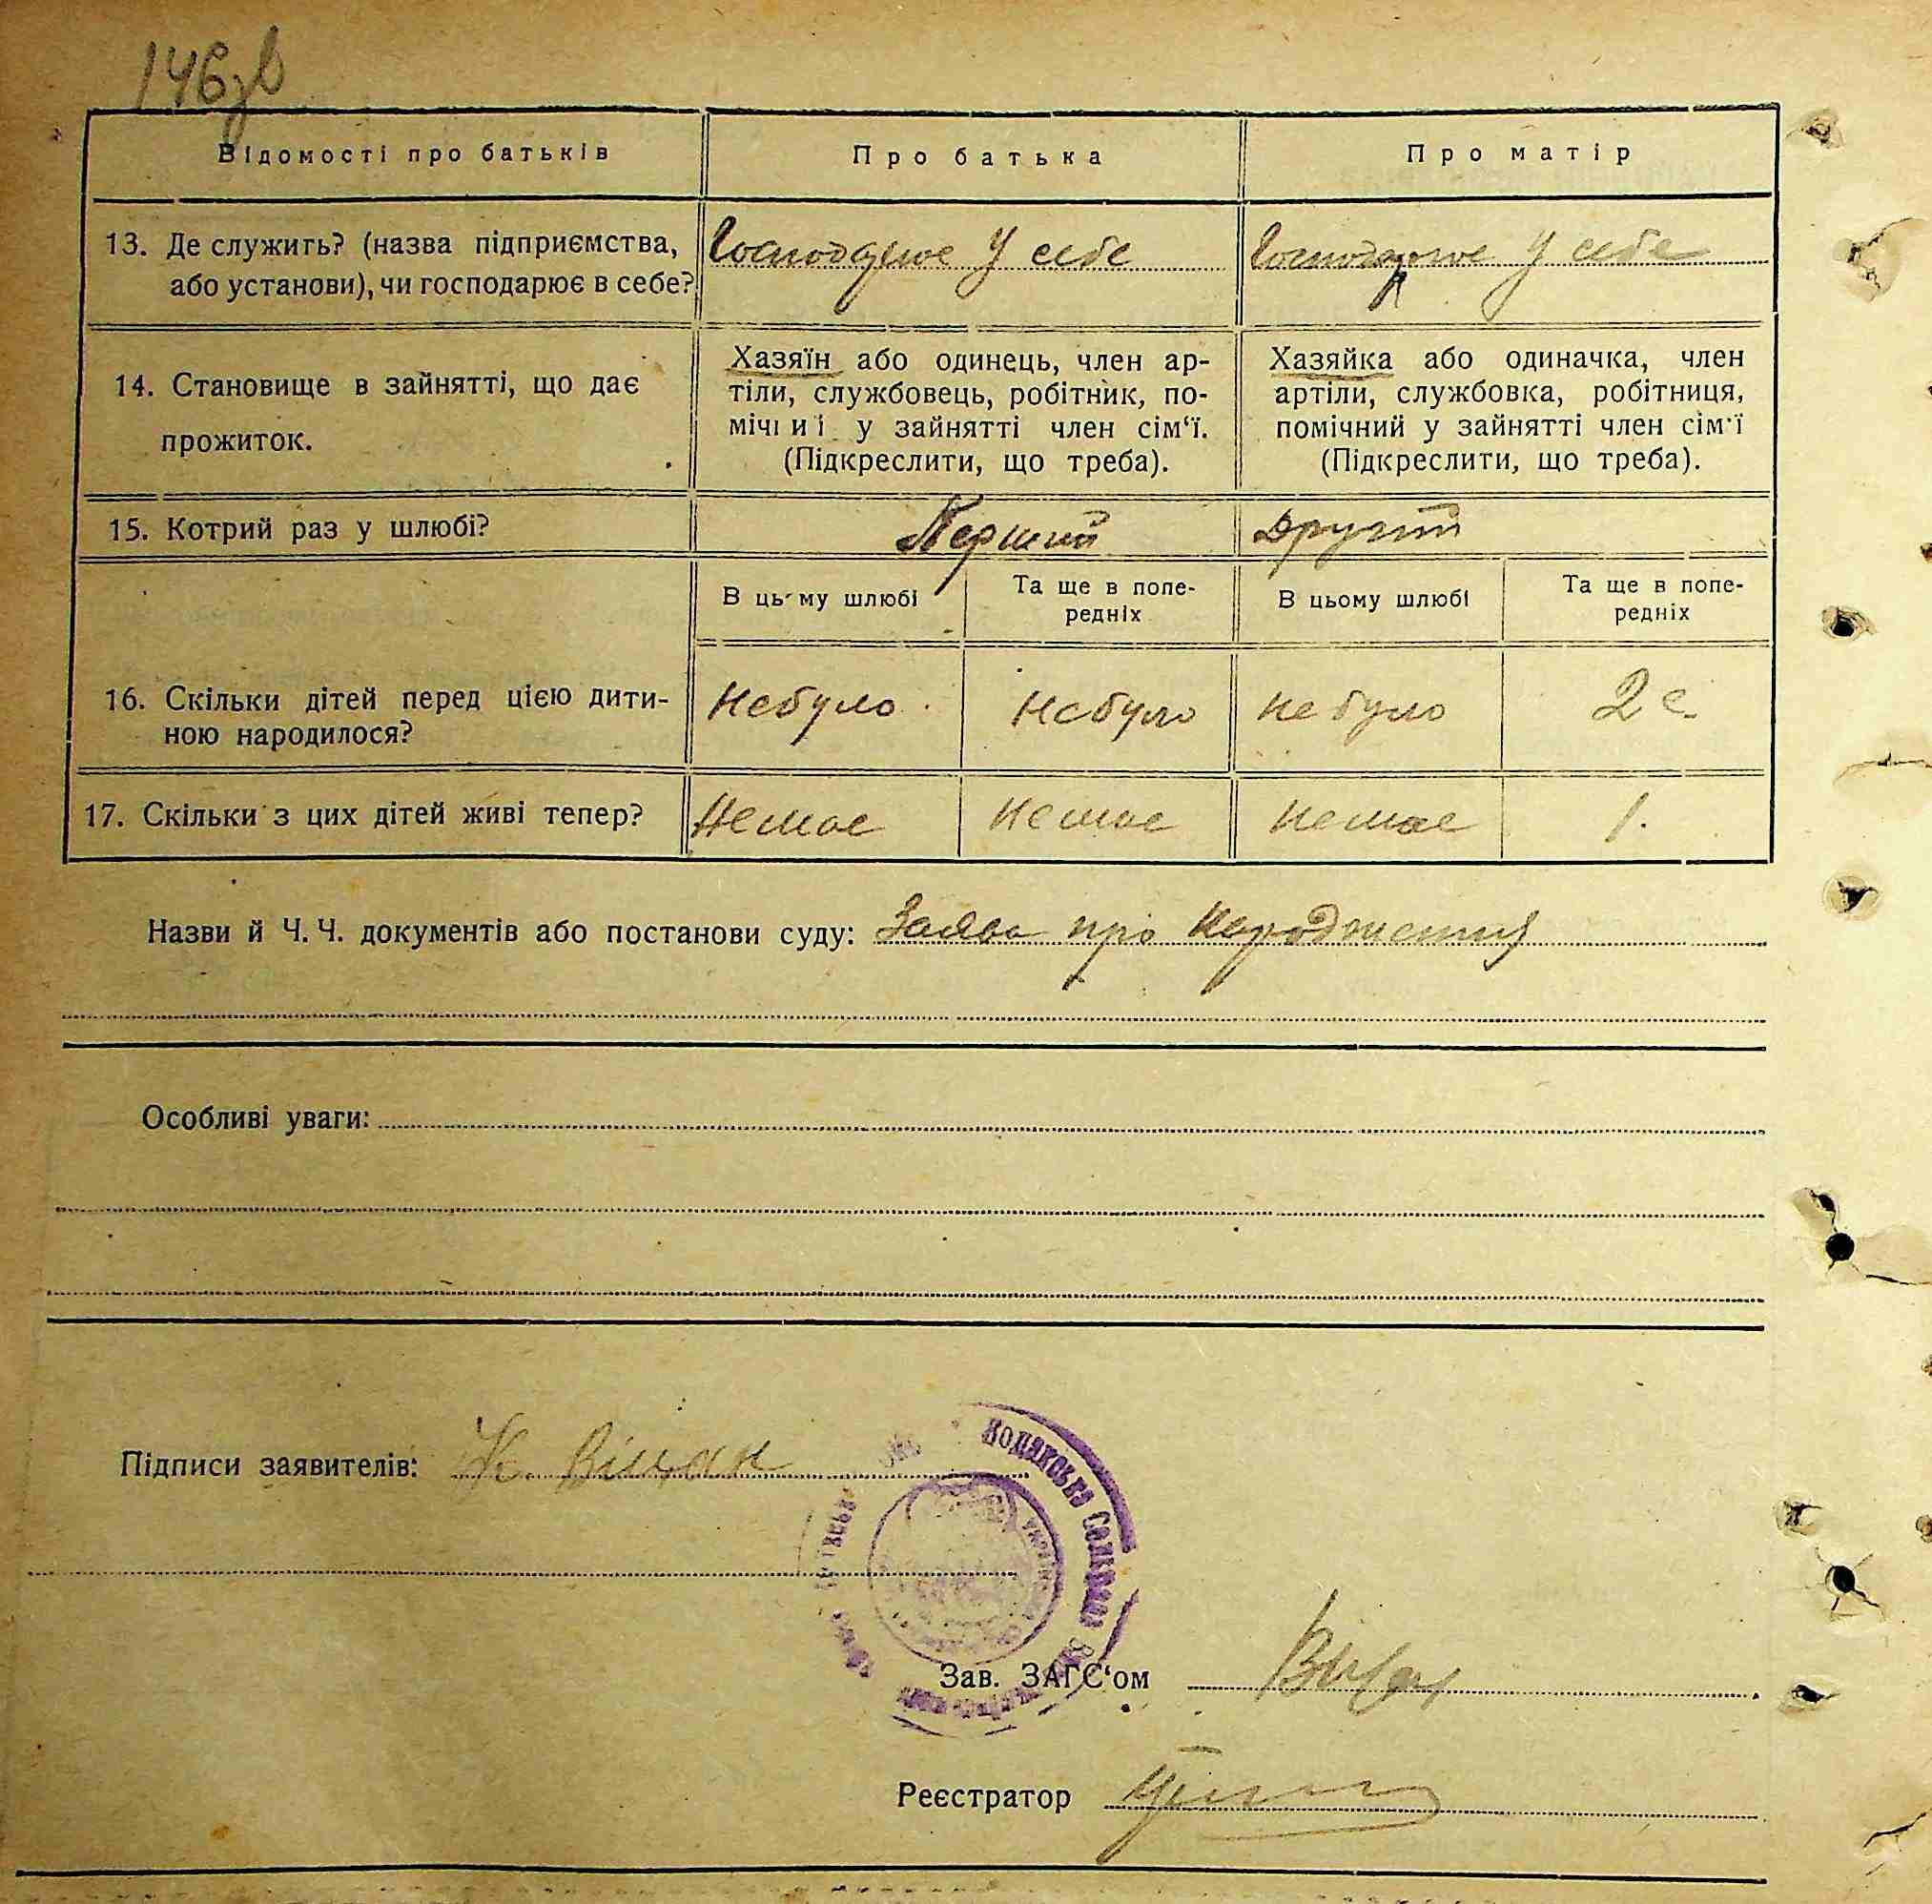 146зв
Відомості про батьків
Про батька
Про матір
13. Де служить? (назва підприємства,
або установи), чи господарює в себе?
Господарює У себе
Господарює У себе
14. Становище в зайнятті, що дає
прожиток.
Хазяїн або одинець, член ар-
тіли, службовець, робітник, по-
мічниі у зайнятті член сім‘ї.
(Підкреслити, що треба).
Хазяйка або одиначка, член
артіли, службовка, робітниця,
помічний у зайнятті член сім‘ї
(Підкреслити, що треба).
15. Котрий раз у шлюбі?
Перший
Другий
В цьму шлюбі
Та ще в попе-
редніх
В цьому шлюбі
Та ще в попе-
редніх
16. Скільки дітей перед цією дити-
ною народилося?
Небуло
Небуло
Небуло
2 є
17. Скільки з цих дітей живі тепер?
Немає
Немає
Немає
1.
Назви й Ч. Ч. документів або постанови суду: Заява про народження
Особливі уваги:
Підписи заявителів:
Кодакська Сельрада
Зав. ЗАГС‘ом
Реєстратор